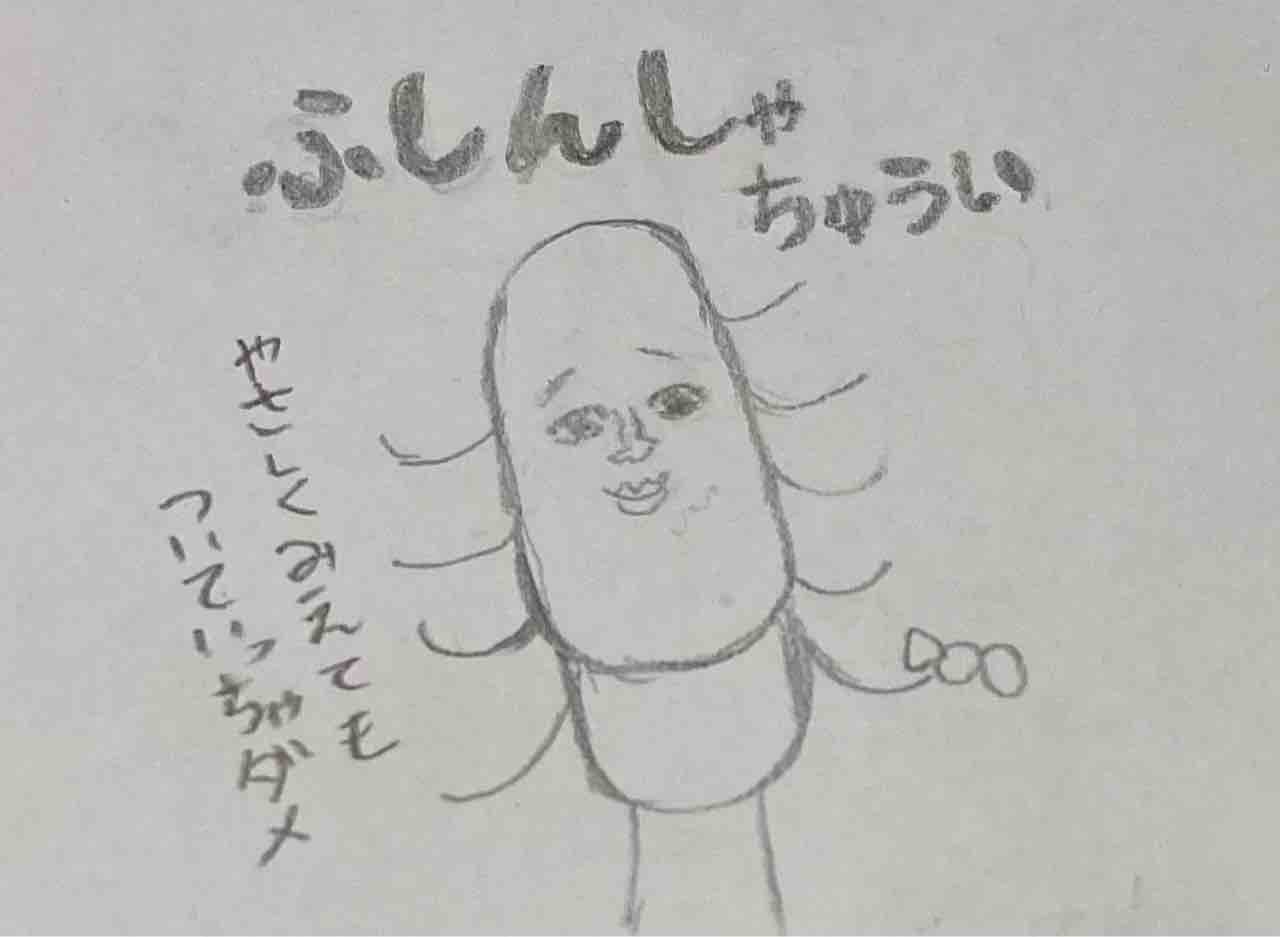 ふしんしゃ
ちゅうい
やさしくみえても
ついていっちゃダメ